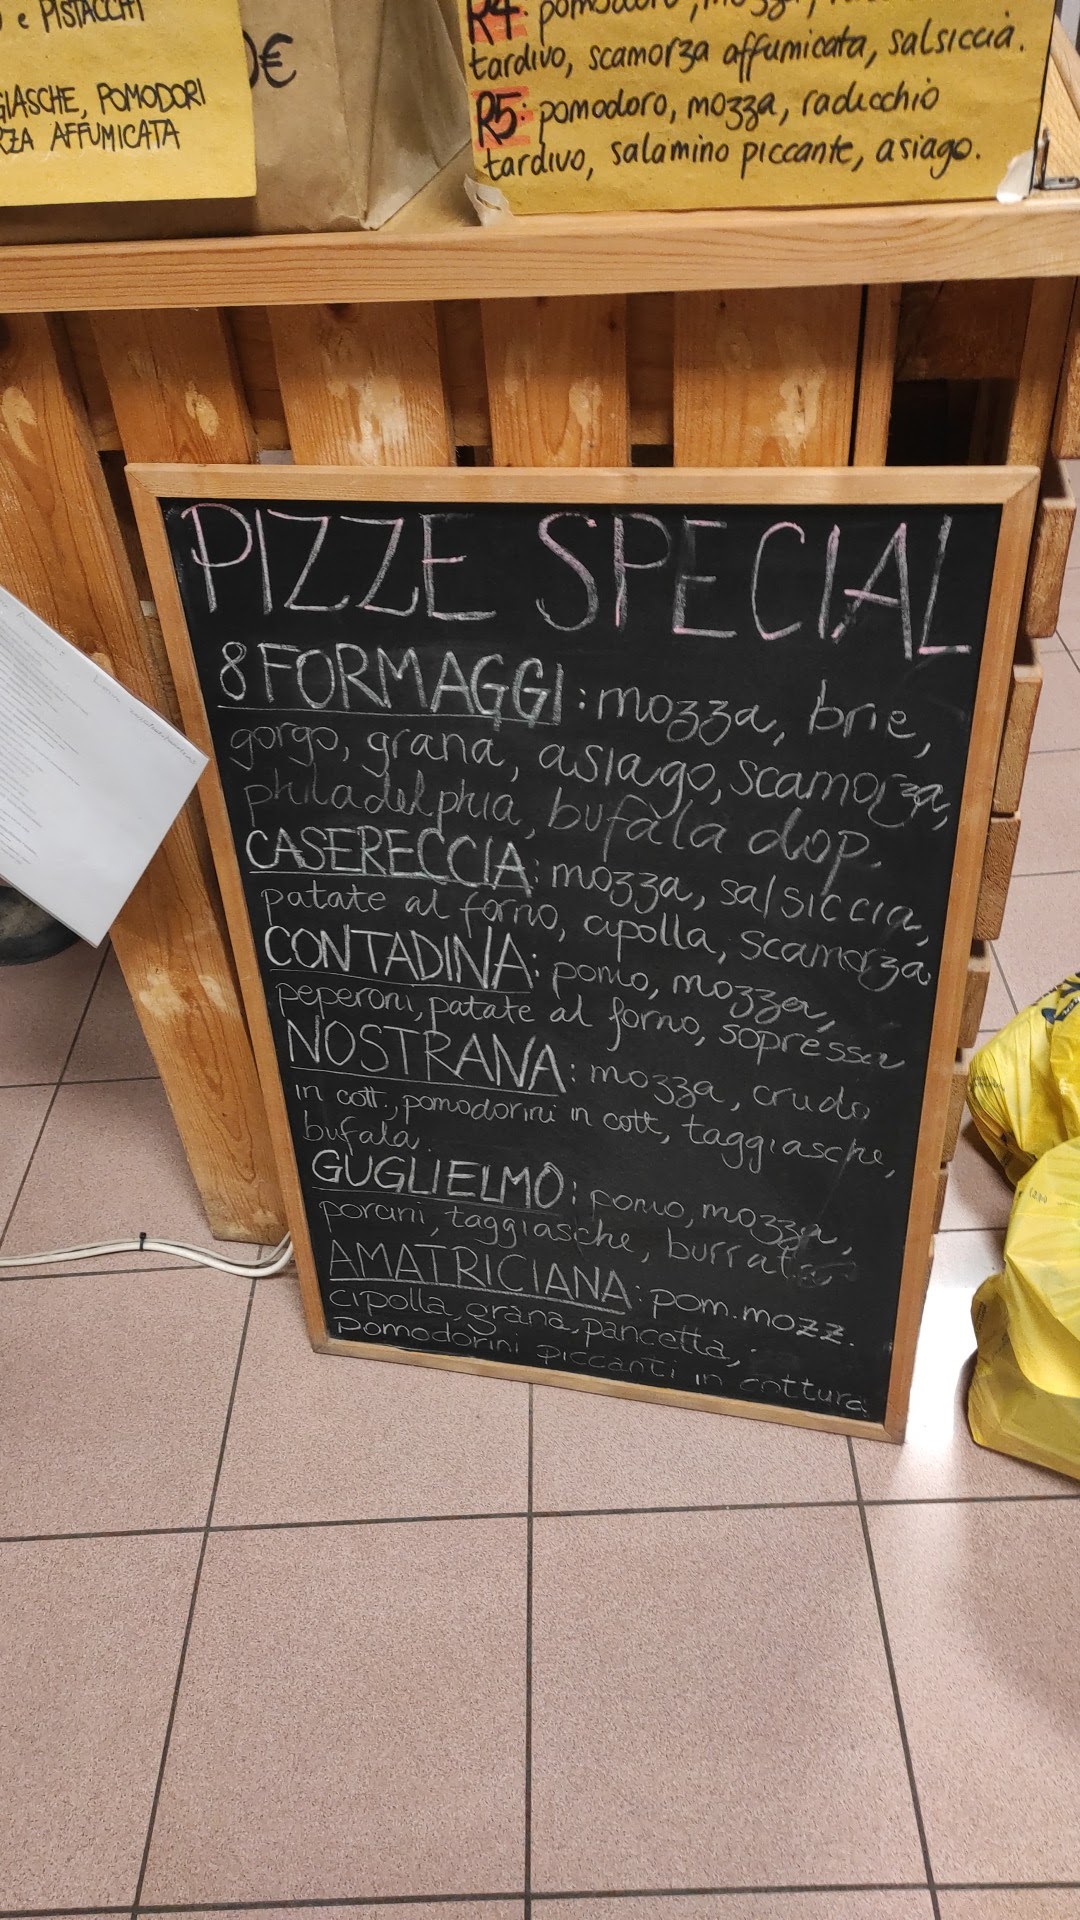 e PISTACCHI
POMODORI
AFFUMICATA
€
R4: pomodoro, mozza,
tardivo, scamorza affumicata, salsiccia.
R5: pomodoro, mozza, radicchio
tardivo, salamino piccante, asiago.
PIZZE SPECIAL
8 FORMAGGI: mozza, brie,
gorgo, grana, asiago, scamorza,
philadelphia, bufala dop.
CASERECCIA: mozza, salsiccia,
patate al forno, cipolla, scamorza
CONTADINA: pomo, mozza,
peperoni, patate al forno, sopressa
NOSTRANA: mozza, crudo
in cott., pomodorini in cott, taggiasche,
bufala.
GUGLIELMO: pomo, mozza,
porcini, taggiasche, burrata
AMATRICIANA: pom. mozz.
cipolla, grana, pancetta,
pomodorini piccanti in cottura